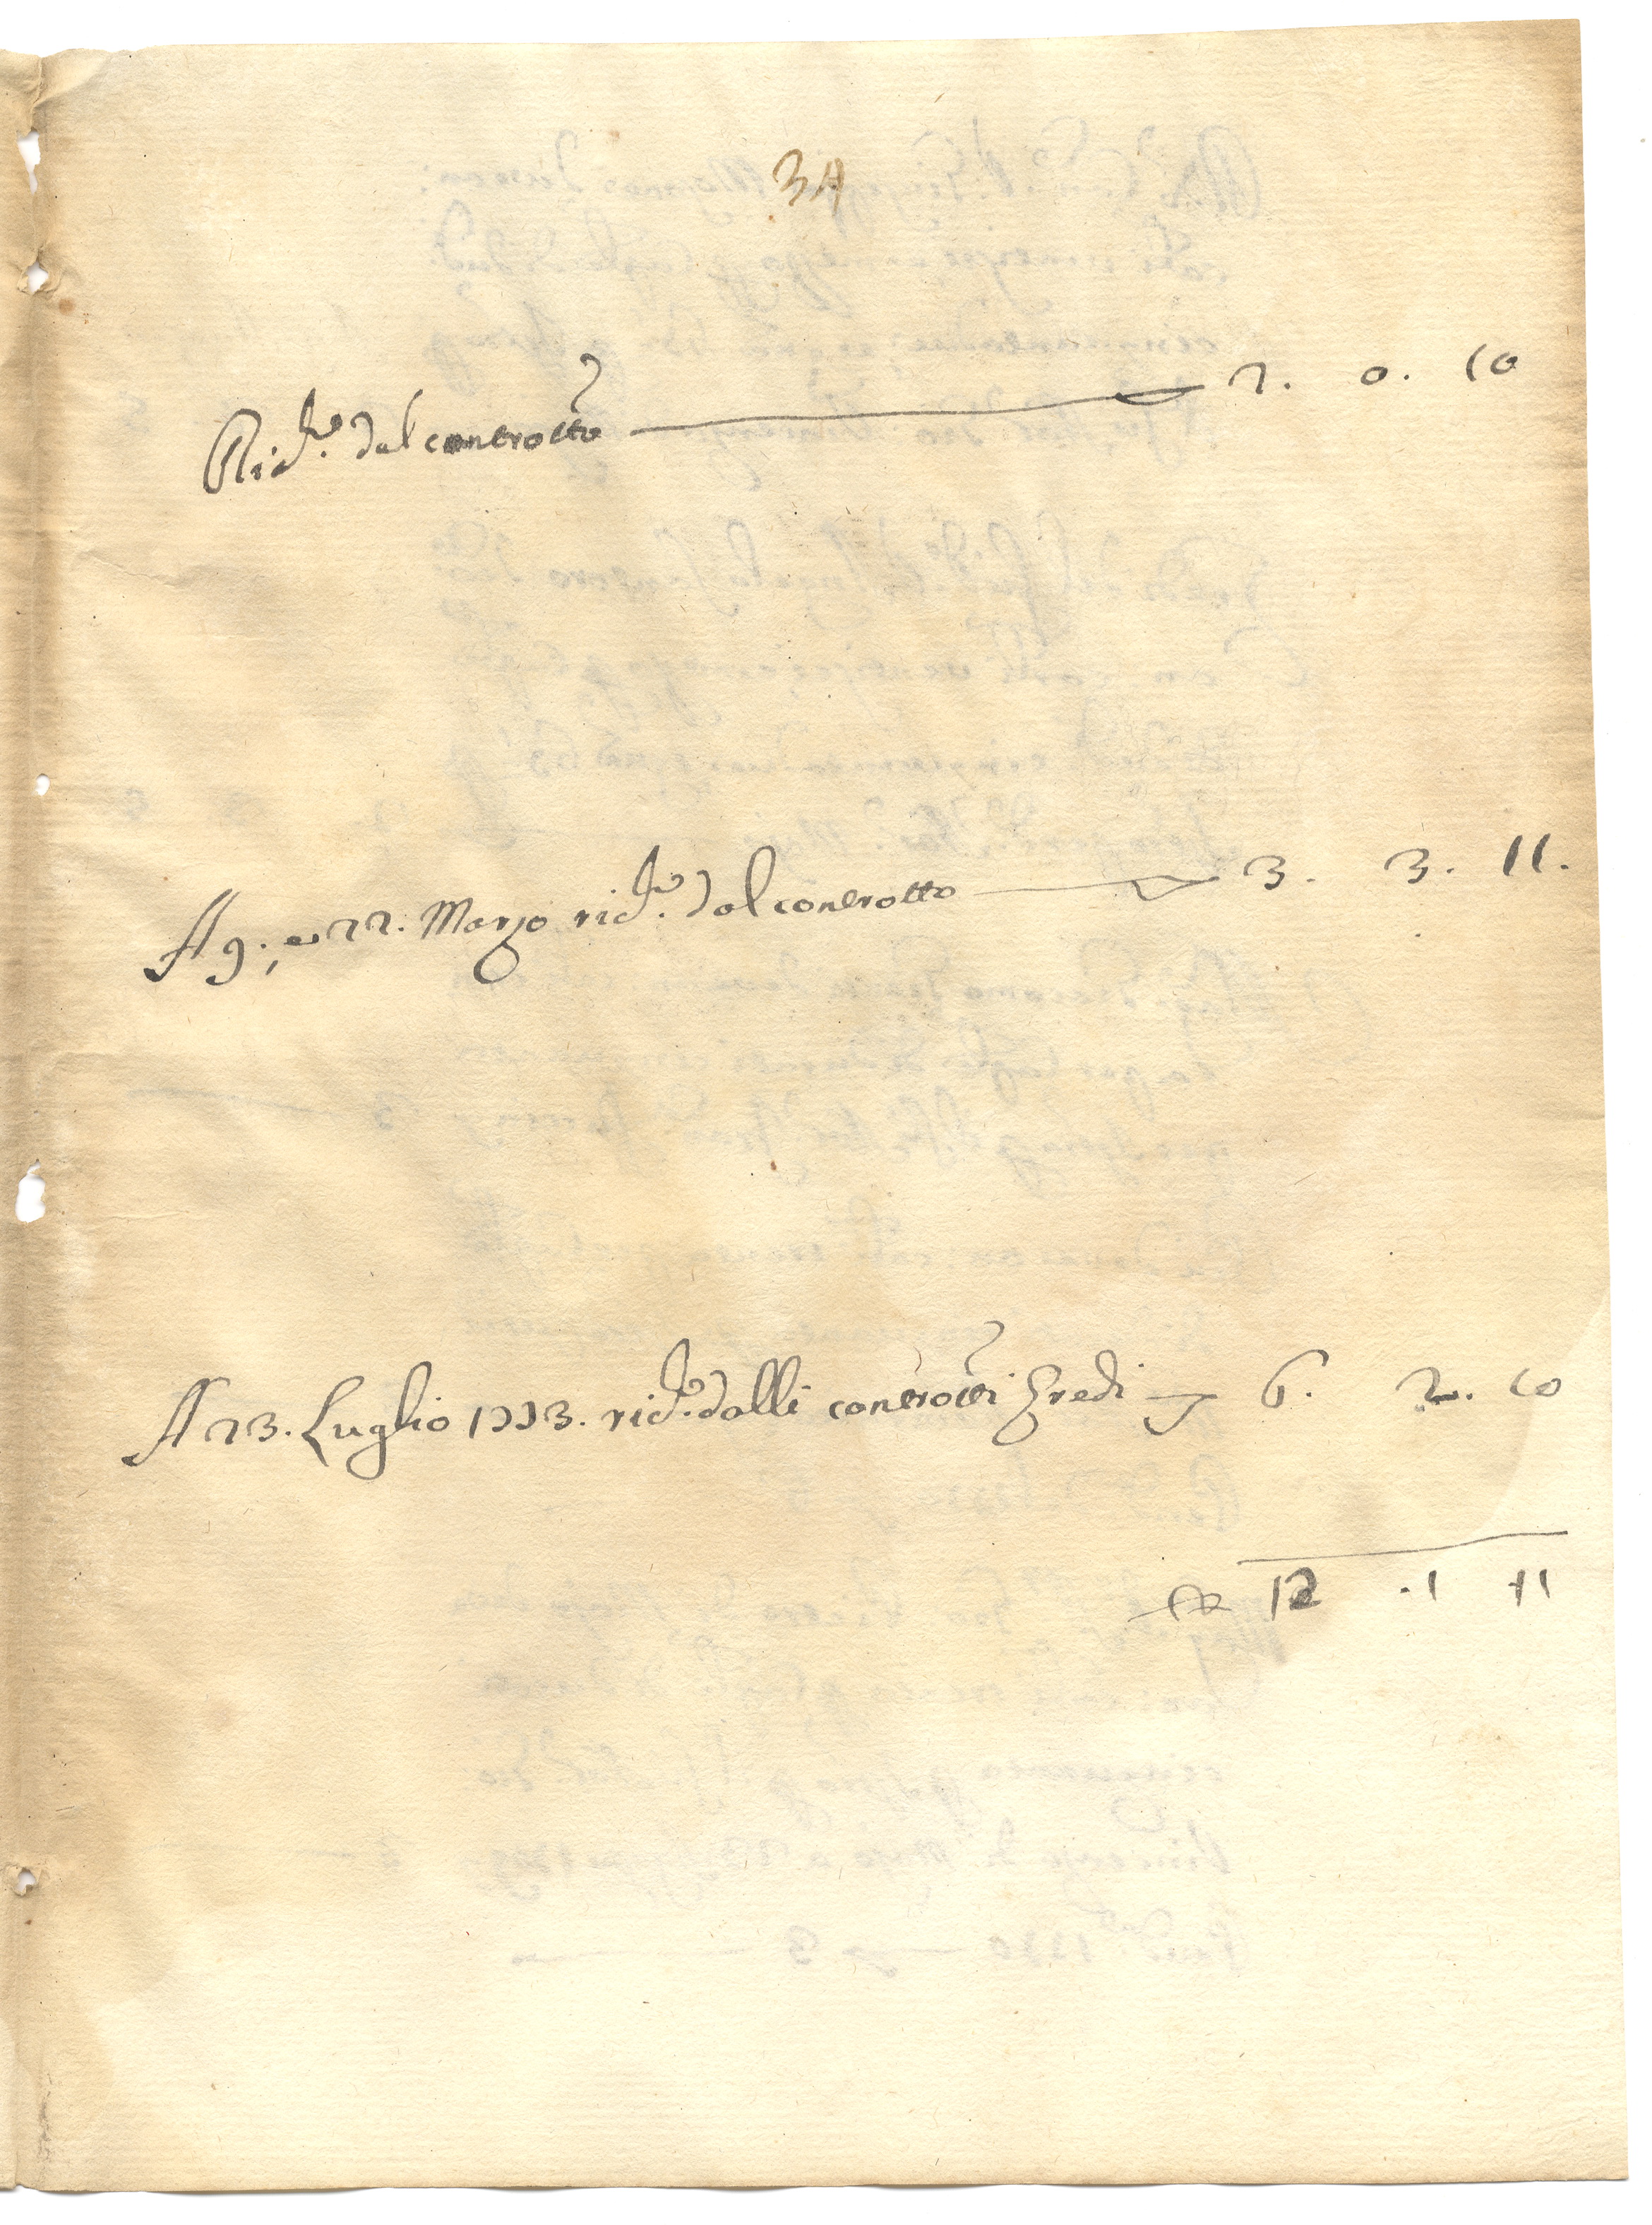 34
Ric.to dal controtto 2. 0. 10
A 9., e 22. Marzo ric.to dal controtto 3. 3. 11.
A 23. Luglio 1773. ric.to dalli controtti Eredi 6. 2. 10
12 .1 11